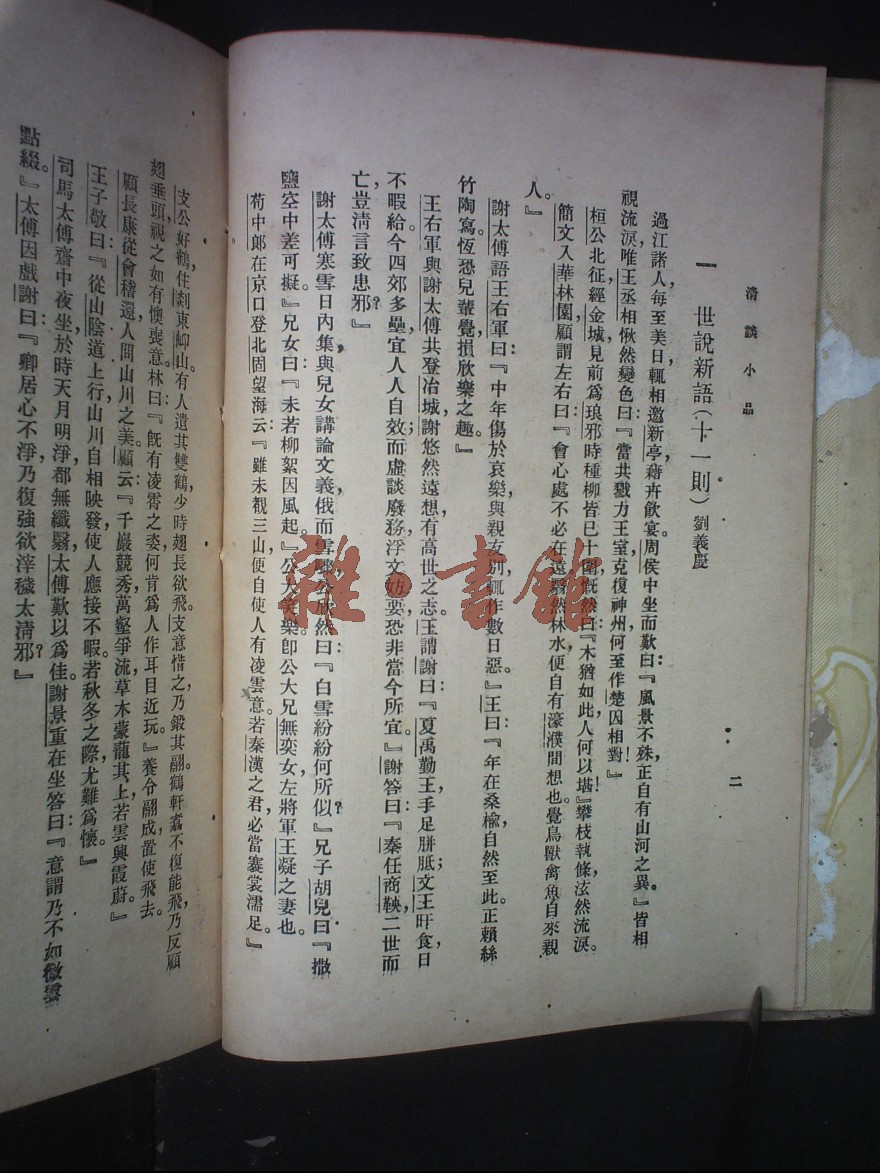 清談小品
二
一 世說新語(十一則) 劉義慶
過江諸人,每至美日,輒相邀新亭,藉卉飲宴。周侯中坐而歎曰:『風景不殊,正自有山河之異。』皆相
視流淚。唯王丞相愀然變色曰:『當共戮力王室,克復神州,何至作楚囚相對!』
桓公北征,經金城,見前為琅邪時種柳,皆已十圍,慨然曰:『木猶如此,人何以堪!』攀枝執條,泫然流淚。
簡文入華林園,顧謂左右曰:『會心處不必在遠,翳然林水,便自有濠濮間想也。覺鳥獸禽魚自來親
人。』
謝太傅語王右軍曰:『中年傷於哀樂,與親友別,輒作數日惡。』王曰:『年在桑榆,自然至此。正賴絲
竹陶寫,恆恐兒輩覺,損欣樂之趣。』
王右軍與謝太傅共登冶城,謝悠然遠想,有高世之志。王謂謝曰:『夏禹勤王,手足胼胝;文王旰食,日
不暇給。今四郊多壘,宜人人自效;而虛談廢務,浮文妨要,恐非當今所宜。』謝答曰:『秦任商鞅,二世而
亡,豈清言致患邪?』
謝太傅寒雪日內集,與兒女講論文義,俄而雪驟,公欣然曰:『白雪紛紛何所似?』兄子胡兒曰:『撒
鹽空中差可擬。』兄女曰:『未若柳絮因風起。』公大笑樂。卽公大兄無奕女,左將軍王凝之妻也。
荀中郎在京口,登北固望海云:『雖未覩三山,便自使人有凌雲意。若秦漢之君,必當褰裳濡足。』
支公好鶴,住剡東岇山。有人遺其雙鶴,少時翅長欲飛。支意惜之,乃鎩其翮。鶴軒翥不復能飛,乃反顧
翅垂頭,視之如有懊喪意。林曰:『旣有凌霄之姿,何肯為人作耳目近玩。』養令翮成,置使飛去。
顧長康從會稽還,人問山川之美。顧云:『千巖競秀,萬壑爭流,草木蒙籠其上,若雲興霞蔚。』
王子敬曰:『從山陰道上行,山川自相映發,使人應接不暇。若秋冬之際,尤難為懷。』
司馬太傅齋中夜坐,於時天月明淨,都無纖翳,太傅歎以為佳。謝景重在坐,答曰:『意謂乃不如微雲
點綴。』太傅因戲謝曰:『卿居心不淨,乃復強欲滓穢太清邪?』
雜·書館